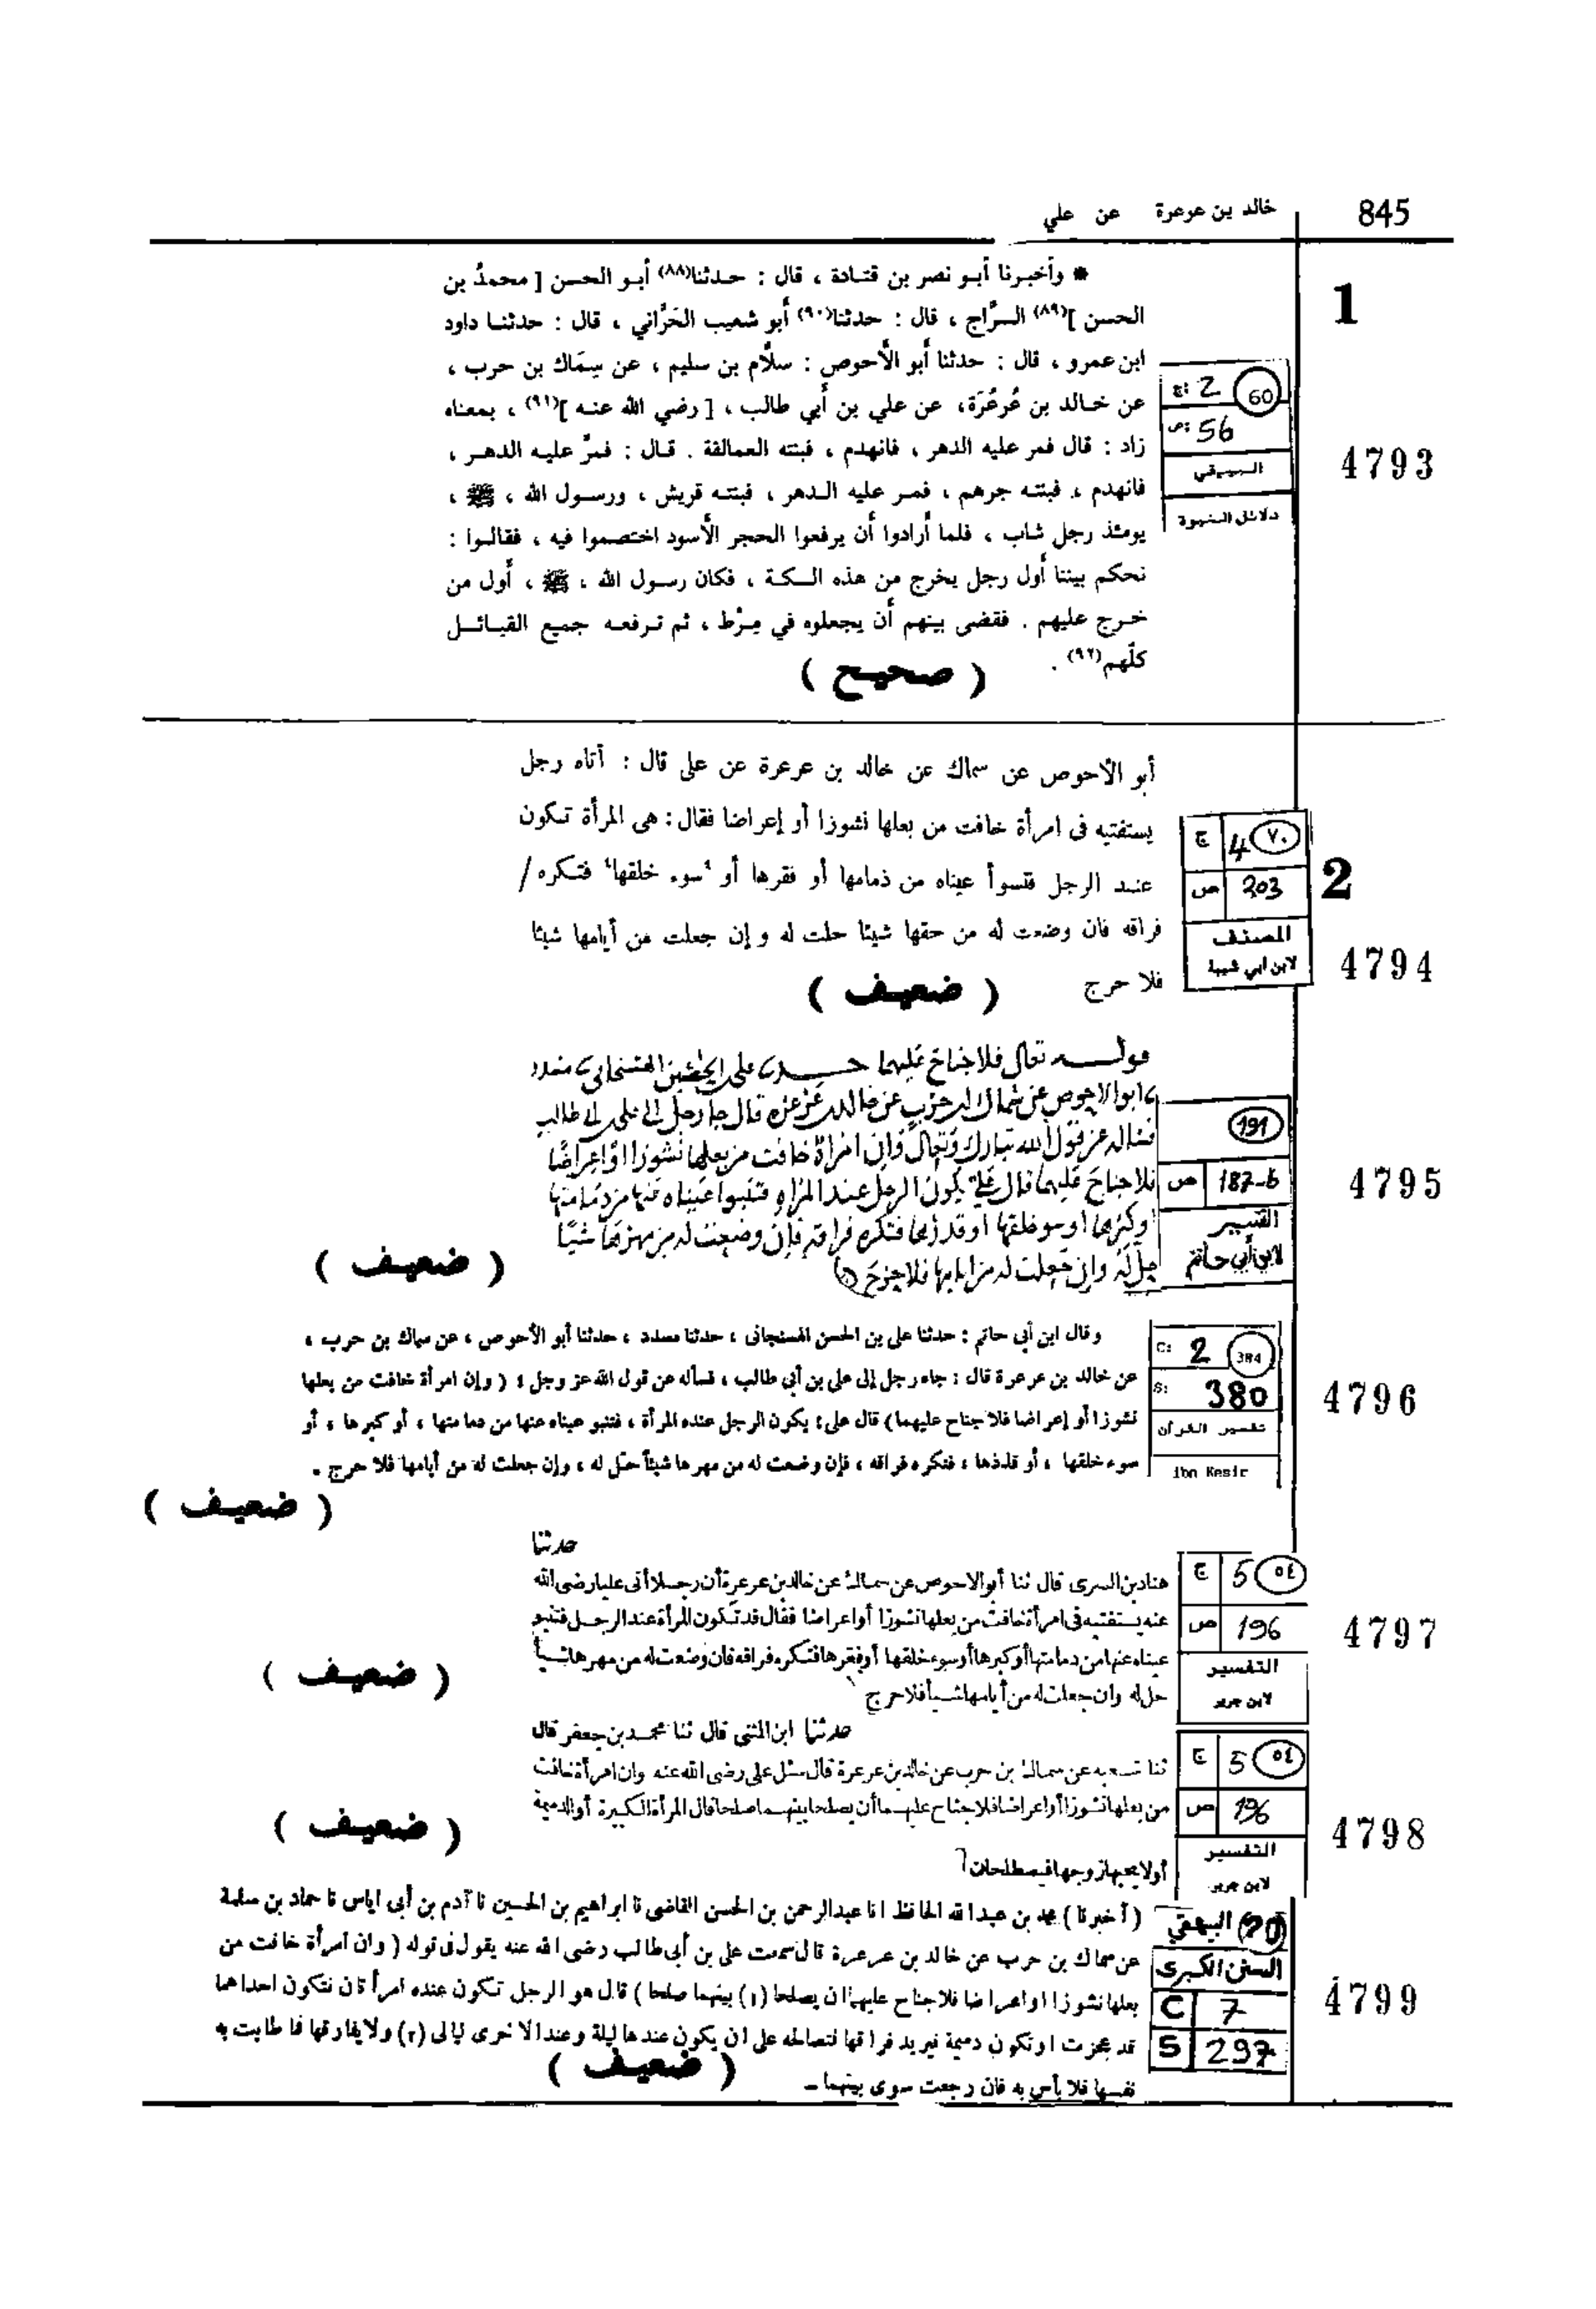 845
خالد بن عرعرة عن علي
1
* وأخبرنا أبو نصر بن قتادة ، قال : حدثنا(٨٨) أبو الحسن [ محمدُ بن
الحسن ](٨٩) السرَّاج ، قال : حدثنا(٩٠) أبو شعيب الحَرَّاني ، قال : حدثنا داود
ابن عمرو ، قال : حدثنا أبو الأحوص : سلَّام بن سليم ، عن سِمَاك بن حرب ،
عن خالد بن عُرعُرَة، عن علي بن أبي طالب ، [ رضي الله عنه ](٩١) ، بمعناه
زاد : قال فمر عليه الدهر ، فانهدم ، فبنته العمالقة . قال : فمرَّ عليه الدهر ،
فانهدم ، فبنته جرهم ، فمر عليه الدهر ، فبنته قريش ، ورسول الله ، ﷺ ،
يومئذ رجل شاب ، فلما أرادوا أن يرفعوا الحجر الأسود اختصموا فيه ، فقالوا :
نحكم بيننا أول رجل يخرج من هذه السكة ، فكان رسول الله ، ﷺ ، أول من
خرج عليهم . فقضى بينهم أن يجعلوه في مِرْط ، ثم ترفعه جميع القبائل
كلّهم(٩٢) .
( صحيح )
ج: 2 60
ص: 56
البيهقي
دلائل النبوة
4793
أبو الأحوص عن سماك عن خالد بن عرعرة عن على قال : أتاه رجل
يستفتيه فى امرأة خافت من بعلها نشوزا أو إعراضا فقال : هى المرأة تكون
عند الرجل فتسوأ عيناه من ذمامها أو فقرها أو ‘سوء خلقها‘ فتكره /
فراقه فان وضعت له من حقها شيئا حلت له و إن جعلت من أيامها شيئا
فلا حرج
( ضعيف )
ج 4 ٧٠
ص 203
المصنف
لابن ابي شيبة
2
4794
قوله تعالى فلا جناح عليهما حدثنا على بن الحسين الهسنجانى ثنا مسدد
ثنا ابو الاحوص عن سماك بن حرب عن خالد بن عرعرة قال جا رجل الى على بن ابى طالب
فسأله عن قول الله تبارك وتعالى وان امراة خافت من بعلها نشوزا او اعراضا
فلا جناح عليهما قال على يكون الرجل عند المراه فتنبوا عيناه عنها من دمامتها
او كبرها او سو خلقها او قذذها فتكره فراقه فان وضعت له من مهرها شيئا
حل له وان جعلت له من ايامها فلا حرج
( ضعيف )
191
ص 187-b
التفسير
لابن أبي حاتم
4795
وقال ابن أبي حاتم : حدثنا على بن الحسن الهسنجانى ، حدثنا مسدد ، حدثنا أبو الأحوص ، عن سماك بن حرب ،
عن خالد بن عرعرة قال : جاء رجل إلى على بن أبي طالب ، فسأله عن قول الله عز وجل : ( وإن امرأة خافت من بعلها
نشوزا أو إعراضا فلا جناح عليهما ) قال على : يكون الرجل عنده المرأة ، فتنبو عيناه عنها من دمامتها ، أو كبرها ، أو
سوء خلقها ، أو قذذها ، فتكره فراقه ، فإن وضعت له من مهرها شيئاً حل له ، وإن جعلت له من أيامها فلا حرج .
( ضعيف )
C: 2 384
S: 380
تفسير القرآن
ibn Kesir
4796
حدثنا
هناد بن السرى قال ثنا أبو الاحوص عن سماك عن خالد بن عرعرة أن رجلا أتى عليا رضى الله
عنه يستفتيه فى امرأة خافت من بعلها نشوزا أو اعراضا فقال قد تكون المرأة عند الرجل فتنبو
عيناه عنها من دمامتها أو كبرها أو سوء خلقها أو فقرها فتكره فراقه فان وضعت له من مهرها شيأ
حل له وان جعلت له من أيامها شيأ فلا حرج
( ضعيف )
ج 5 ٥٤
ص 196
التفسير
لابن جرير
4797
حدثنا ابن المثنى قال ثنا محمد بن جعفر قال
ثنا شعبه عن سماك بن حرب عن خالد بن عرعرة قال سئل على رضى الله عنه وان امرأة خافت
من بعلها نشوزا أو اعراضا فلا جناح عليهما أن يصلحا بينهما صلحا قال المرأة الكبيرة أو الدميمة
أو لا يحبها زوجها فيصطلحان
( ضعيف )
ج 5 ٥٤
ص 196
التفسير
لابن جرير
4798
( أخبرنا ) محمد بن عبد الله الحافظ انا عبد الرحمن بن الحسن القاضى نا ابراهيم بن الحسين نا آدم بن أبى اياس نا حماد بن سلمة
عن سماك بن حرب عن خالد بن عرعرة قال سمعت على بن أبى طالب رضى الله عنه يقول فى قوله ( وان امرأة خافت من
بعلها نشوزا او اعراضا فلا جناح عليهما ان يصلحا (١) بينهما صلحا ) قال هو الرجل تكون عنده امرأتان فتكون احداهما
قد عجزت او تكون دميمة فيريد فراقها فتصالحه على ان يكون عندها ليلة وعند الاخرى ليالى (٢) ولا يفارقها فما طابت به
نفسها فلا بأس به فان رجعت سوى بينهما –
( ضعيف )
البيهقي
السنن الكبرى
C 7
S 297
4799